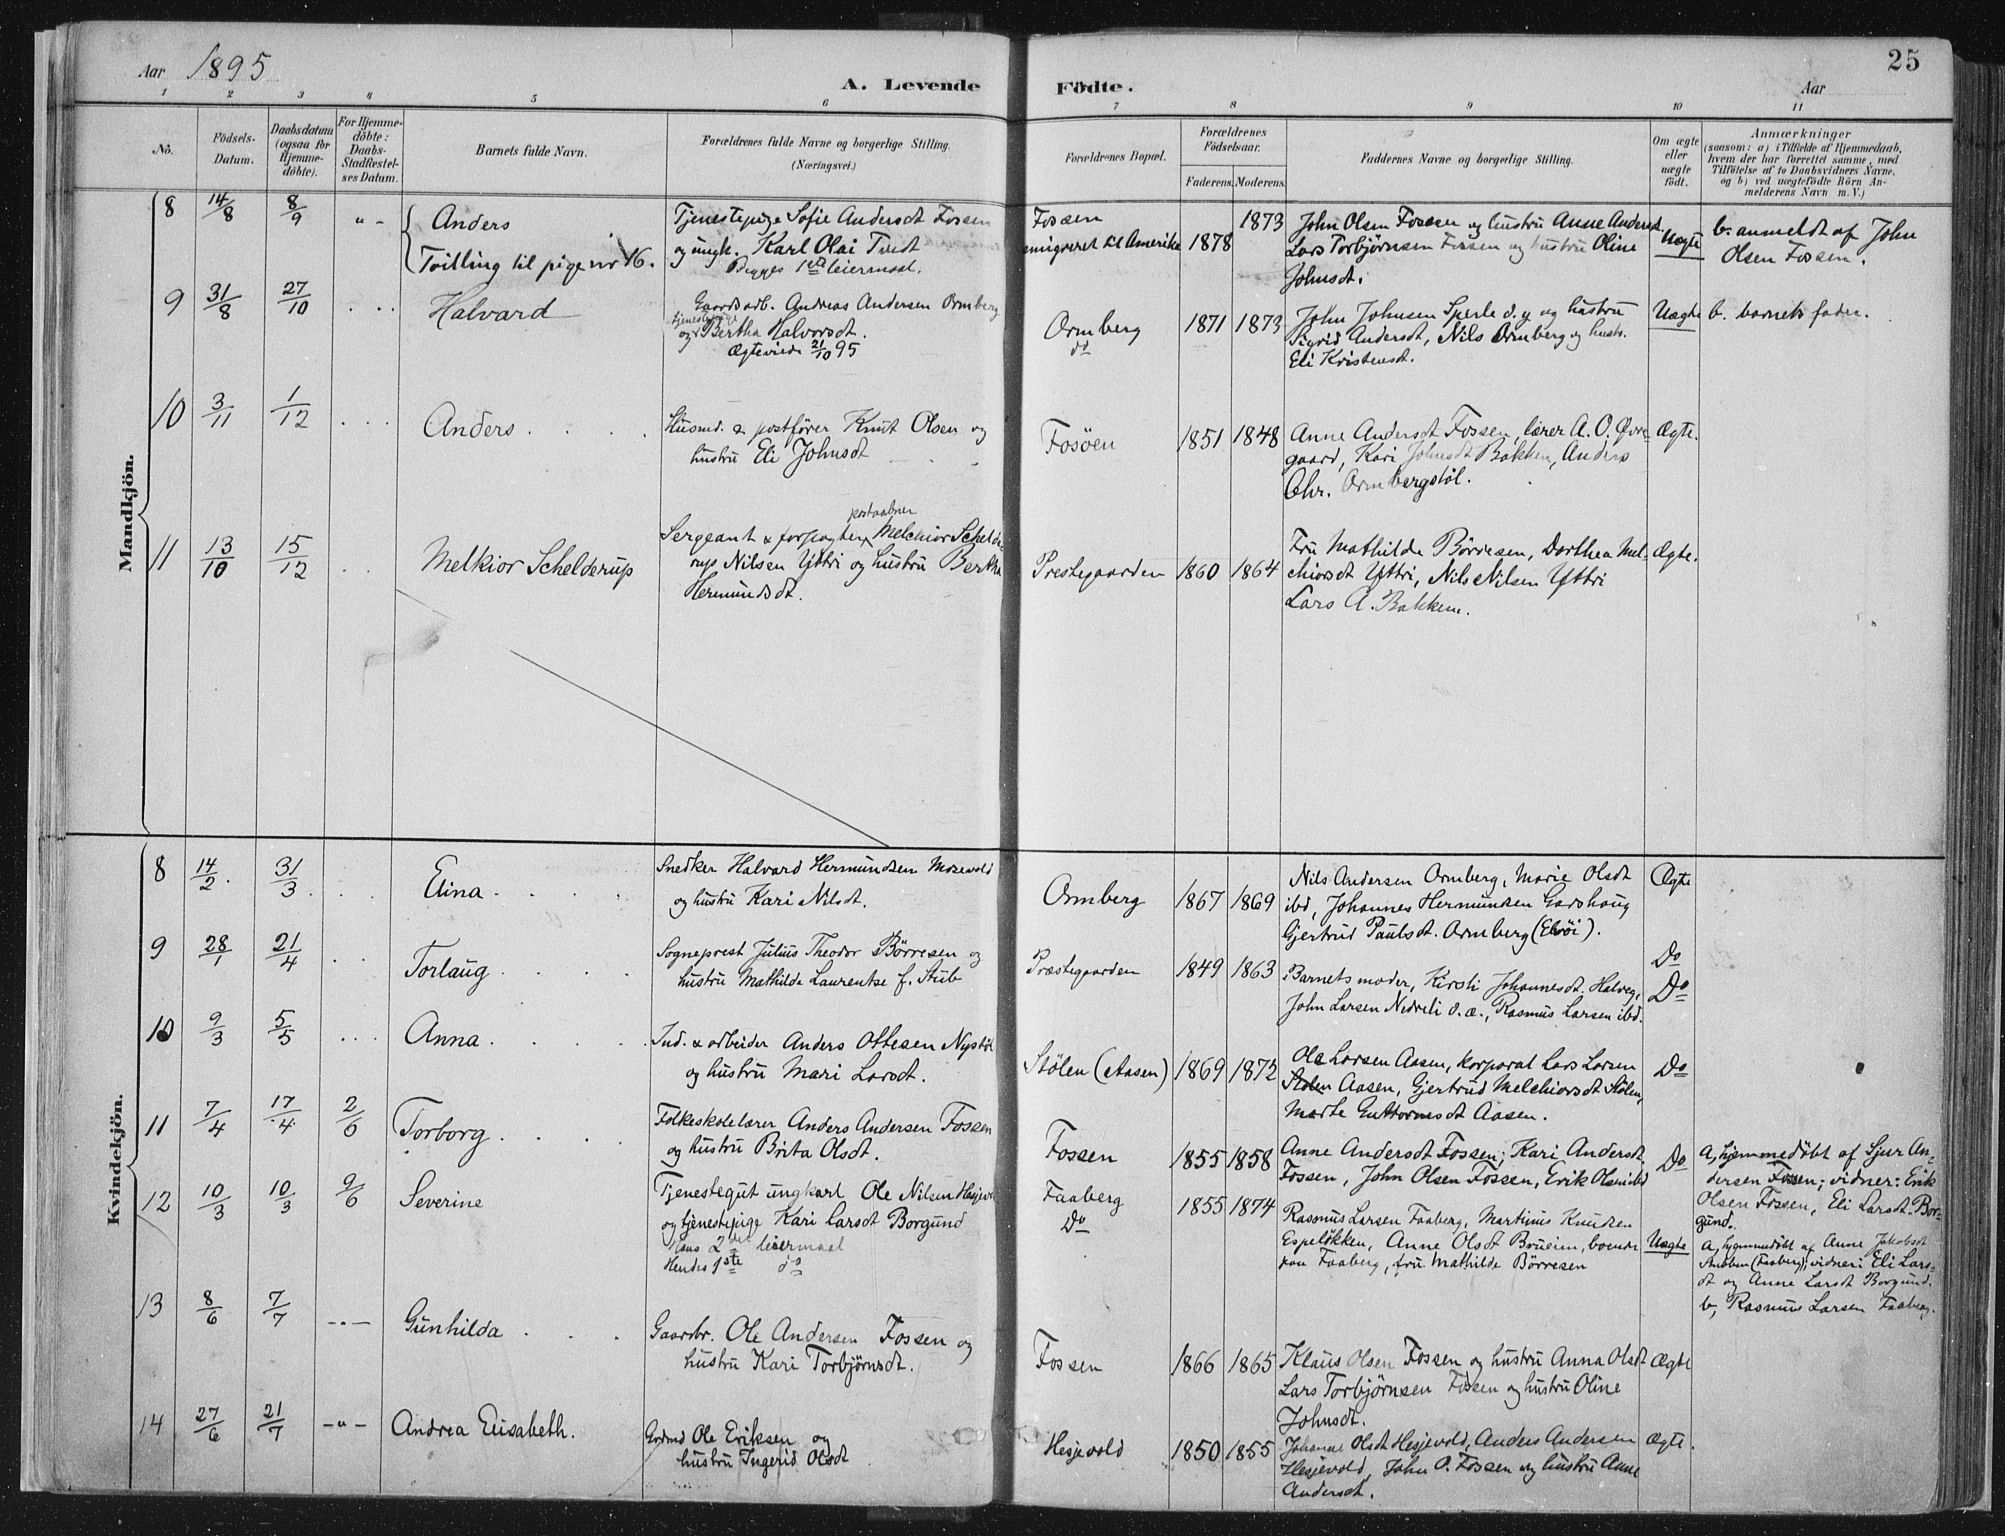 Aar 1895
25
A. Levende Födte.
Aar
1 2 3 4 5 6 7 8 9 10 11
No.
Födsels-Datum.
Daabsdatum (ogsaa for Hjemme-döbte).
For Hjemme-döbte: Daabs-Stadfæstel-ses Datum.
Barnets fulde Navn.
Forældrenes fulde Navne og borgerlige Stilling. (Næringsvei.)
Forældrenes Bopæl.
Forældrenes Födselsaar.
Faderens. Moderens.
Faddernes Navne og borgerlige Stilling.
Om ægte eller uægte födt.
Anmærkninger
(saasom: a) i Tilfælde af Hjemmedaab,
hvem der har forrettet samme, med
Tilföielse af to Daabsvidners Navne,
og b) ved uægtefödte Börn An-
melderens Navn m. V.)
Mandkjön.
8 14/8 8/9 " -
Anders
Tvilling til pige nr 16.
Tjenestepige Sofie Andersdt Fossen
og ungk. Karl Olai Tvedt
Begges 1ste leiermaal.
Fosøen
emigreret til Amerika 1878 1873
John Olsen Fossen og hustru Anne Andersdt
Lars Torbjørnsen Fossen og hustru Oline
Johnsdt.
Uægte
b. anmeldt af John
Olsen Fossen.
9 31/8 27/10 . . .
Halvard
Gaardsarb. Andreas Andersen Ormberg
tjenestepige
og Bertha Halvorsdt.
Ægteviede 21/10 95
Ormberg
do
1871 1873
John Johnsen Sperle d. y og hustru
Sigrid Andersdt, Nils Ormberg og hustr.
Eli Kristensdt.
Uægte
b. barnets fader.
10 3/11 1/12 . . .
Anders . . . .
Husmd. & postfører Knut Olsen og
hustru Eli Johnsdt
Fosøen
1851 1848
Anne Andersdt Fossen, lærer A. O. Øvre-
gaard, Kari Johnsdt Bakken, Anders
Chr. Ormbergstøl.
Ægte.
11 13/10 15/12 . .
Melkior Schelderup
postaabner
Sergeant & forpagter Melchior Schelde-
rup Nilsen Yttri og hustru Bertha
Hermundsdt.
Prestegaarden
1860 1864
Fru Mathilde Börresen, Dorthea Mel-
chiorsdt Yttri, Nils Nilsen Yttri
Lars A. Bakken.
Ægte.
Kvindekjön.
8 14/2. 31/3. . .
Elina . . . .
Snedker Halvard Hermundsen Moxevold
og hustru Kari Nilsdt.
Ormberg
1867 1869
Nils Andersen Ormberg, Marie Olsdt
ibd, Johannes Hermundsen Gardhaug
Gjertrud Paulsdt. Ormberg (Elvöi).
Ægte
9 28/1 21/4 . .
Torlaug . . . .
Sogneprest Julius Theodor Börresen og
hustru Mathilde Laurentse f. Stub
Præstegaarden
1849 1863
Barnets moder, Kirsti Johannesdt. Halveg,
John Larsen Nedreli d. æ., Rasmus Larsen ibd.
Do
Do
10 9/3 5/5 . . .
Anna . . . .
Ind. & arbeider Anders Ottesen Nystöl
og hustru Mari Larsdt.
Stölen (Aasen)
1869 1872
Ole Larsen Aasen, korporal Lars Larsen
Stölen Aasen, Gjertrud Melchiorsdt Stölen,
Marte Guttormsdt Aasen.
Do
11 7/4 17/4 2/6
Torborg . . . .
Folkeskolelærer Anders Andersen Fossen
og hustru Brita Olsdt.
Fossen
1855 1858
Anne Andersdt Fossen, Kari Andersdt
Fossen, John Olsen Fossen, Erik Olsen ibd
Do
a, hjemmedöbt af Sjur An-
dersen Fossen; vidner: Erik
Olsen Fossen, Eli Larsdt. Bor-
gund.
12 10/3 10/3 9/6
Severine
Tjenestegut ungkarl Ole Nilsen Hesjevold
og tjenestepige Kari Larsdt Borgund
Hans 2det leiermaal
Hendes 1ste do
Faaberg
Do
1855 1874
Rasmus Larsen Faaberg, Martinus Knudsen
Espelökken, Anne Olsdt Brueim, boende
paa Faaberg, fru Mathilde Börresen
Uægte
a, hjemmedöbt af Anne Jakobsdt
Stubben (Faaberg), vidner: Eli Lars-
dt og Anne Larsdt Borgund.
b, Rasmus Larsen Faaberg.
13 8/6 7/7 - . . -
Gunhilda . . .
Gaardbr. Ole Andersen Fossen og
hustru Kari Torbjörnsdt.
Fossen
1866 1865
Klaus Olsen Fossen og hustru Anna Olsdt
Lars Torbjörnsen Fossen og hustru Oline
Johnsdt.
Ægte
14 27/6 21/7 - " -
Andrea Elisabeth.
Grdmd Ole Eriksen og
hustru Ingerid Olsdt
Hesjevold
1850 1855
Johanne Olsdt Hesjevold, Anders Andersen
Hesjevold, John O. Fossen og hustru Anne
Andersdt.
Ægte.